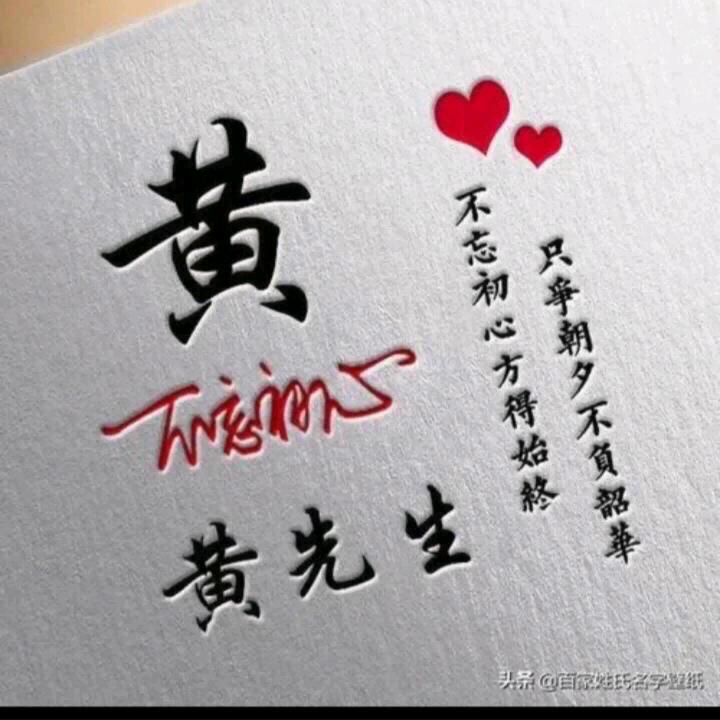 黄
不忘初心
黄先生
只爭朝夕不負韶華
不忘初心方得始終
头条 @百家姓氏名字壁纸